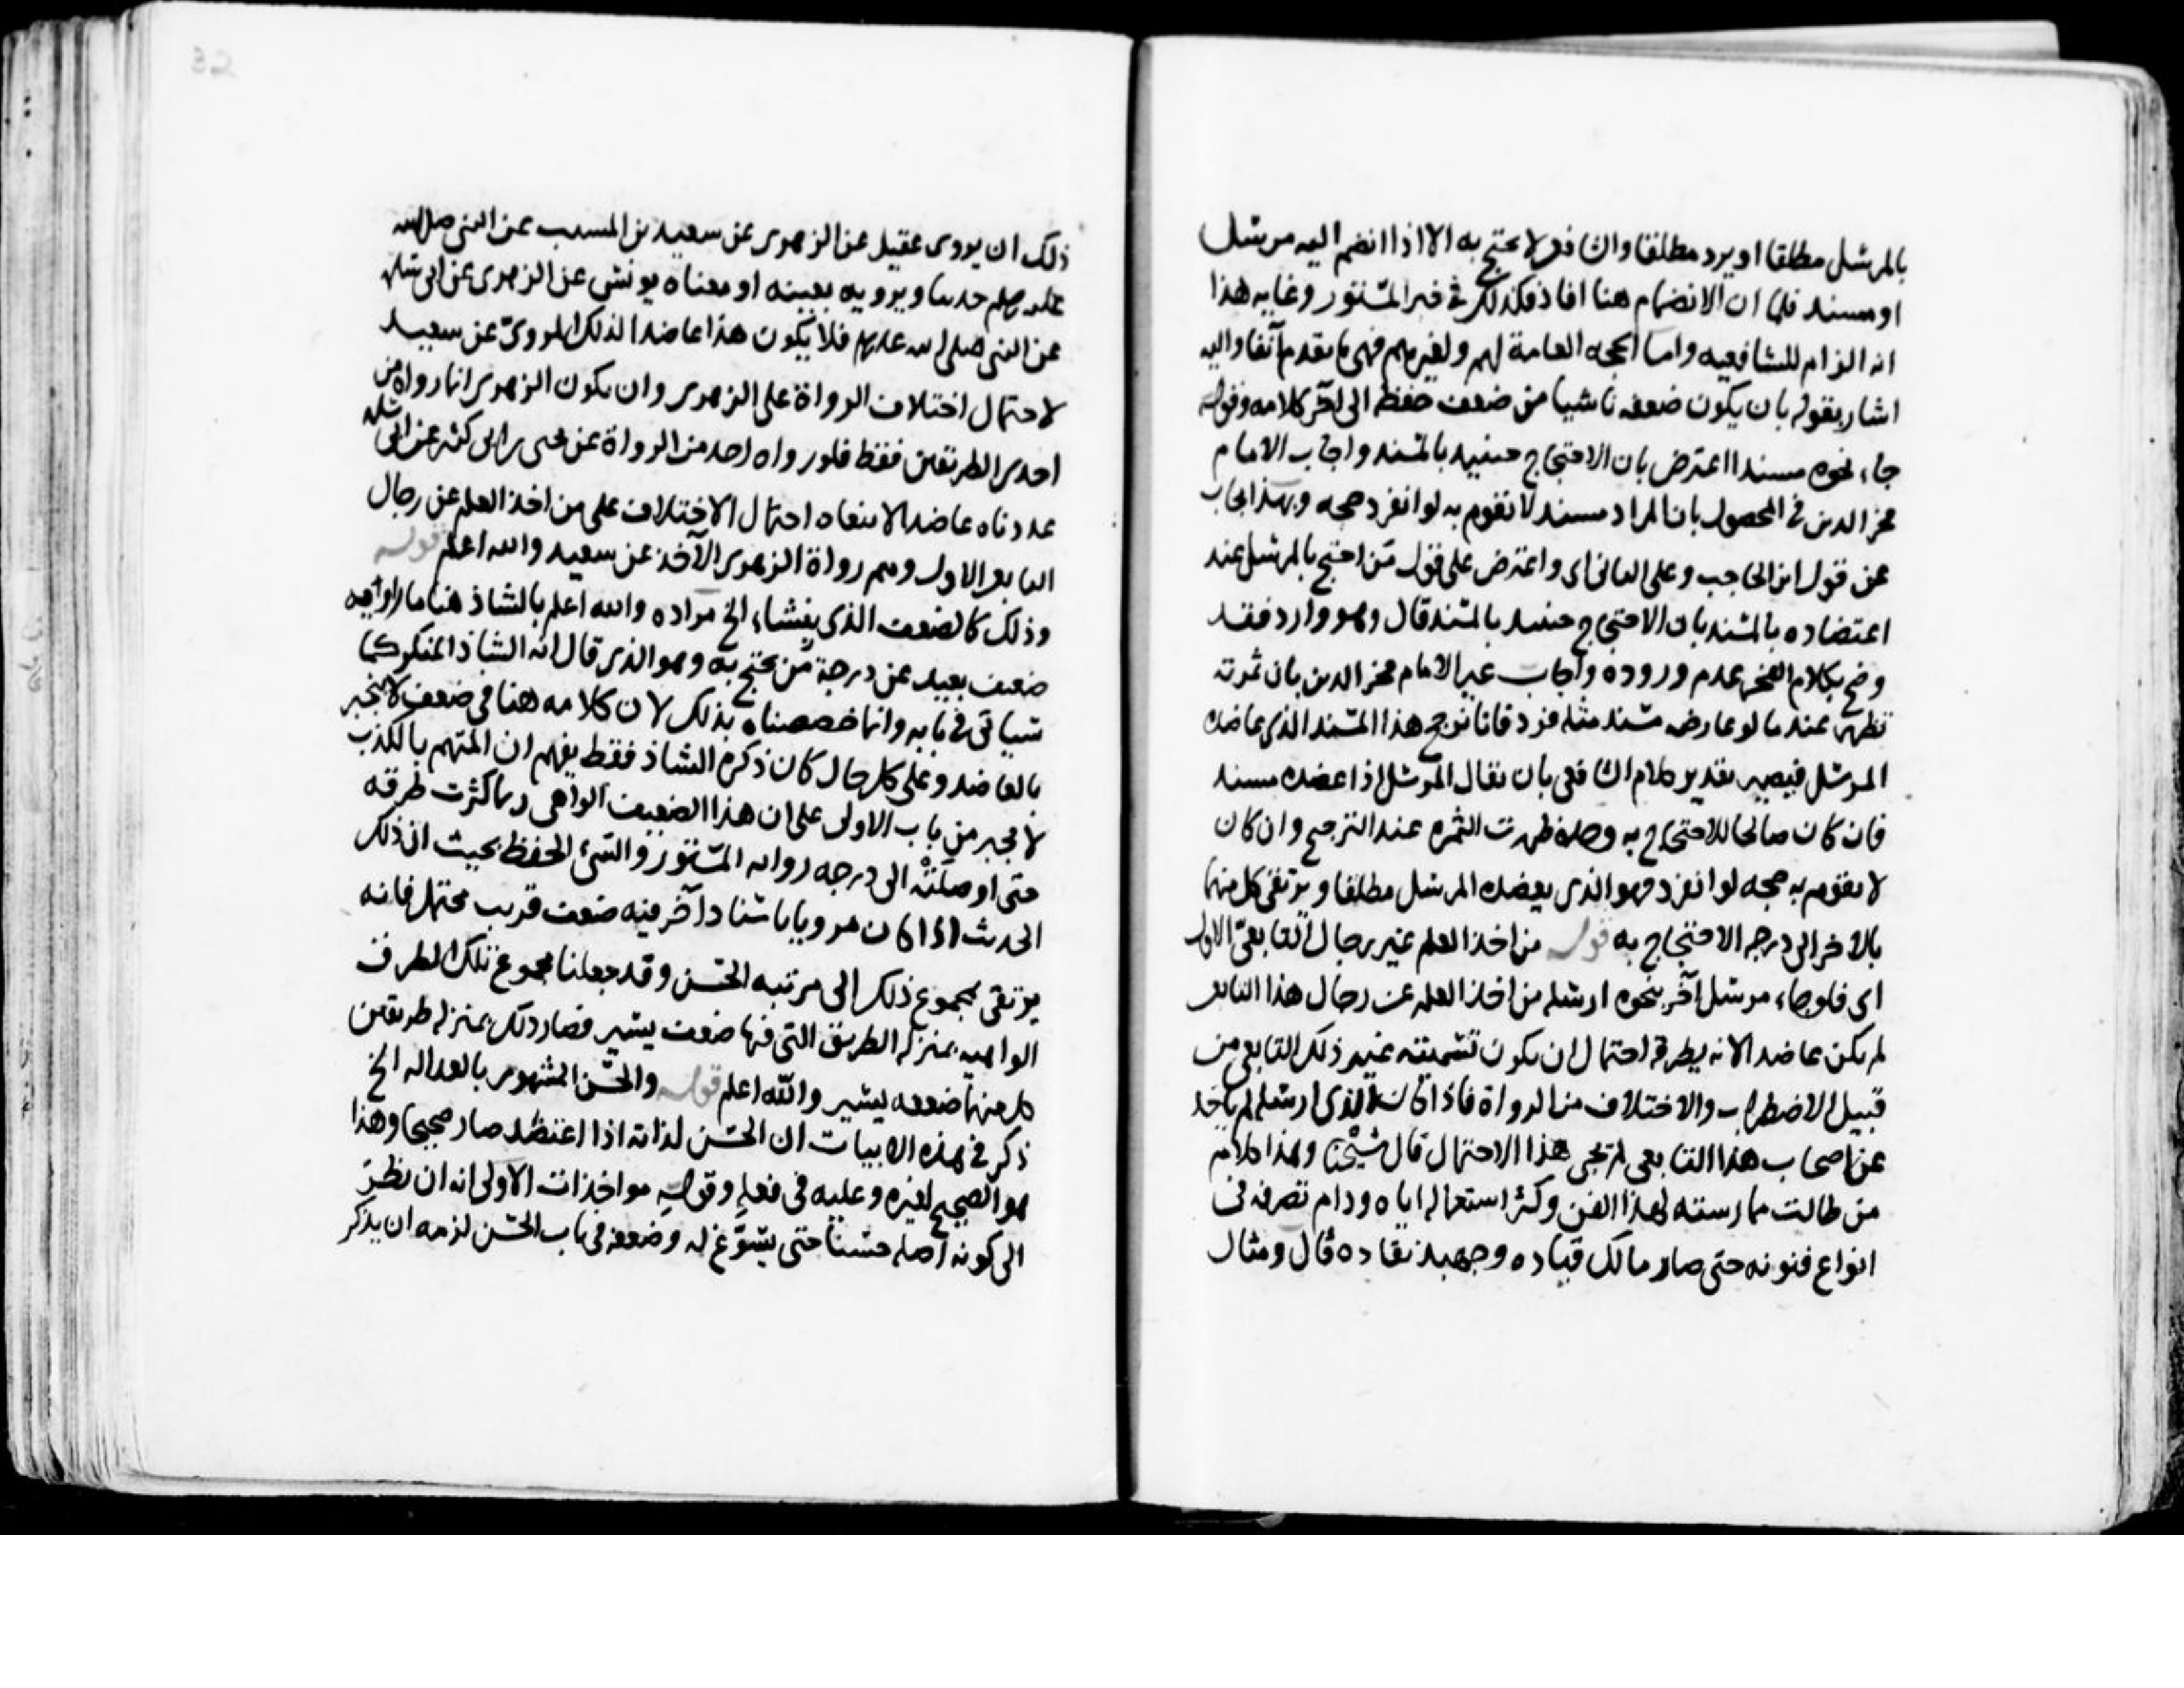 بالمرسل مطلقا او يرد مطلقا والشافعي لا يحتج به الا اذا انضم اليه مرسل
او مسند قلنا ان الانضمام هنا افاد فكذلك في خبر المستور وغايه هذا
انه الزام للشافعيه واما الحجه العامة لهم ولغيرهم فهي ما تقدم آنفا واليه
اشار بقوله بان يكون ضعفه ناشيا من ضعف حفظه الى آخر كلامه وقوله
جاء نحوه مسندا اعترض بان الاحتجاج حينيد بالمسند واجاب الامام
فخر الدين في المحصول بان المراد مسند لا تقوم به لو انفرد حجه وبهذا يجاب
عن قول ابن الحاجب وعلى الثاني اي واعترض على قول من احتج بالمرسل عند
اعتضاده بالمسند بان الاحتجاج حينيد بالمسند قال وهو وارد فقد
وضح بكلام الفخر عدم وروده واجاب غير الامام فخر الدين بان ثمرته
تظهر عند ما لو عارضه مسند مثله فرد فانا نرجح هذا المسند الذي عاضده
المرسل فيصير تقدير كلام الشافعي بان يقال المرسل اذا عضده مسند
فان كان صالحا للاحتجاج به وحده ظهرت الثمره عند الترجيح وان كان
لا تقوم به حجه لو انفرد فهو الذي يعضده المرسل مطلقا ويرتقي كل منهما
بالاخر الى درجه الاحتجاج به قوله من اخذ العلم غير رجال التابعي الاول
اي فلو جاء مرسل آخر بنحوه ارسله من اخذ العلم عن رجال هذا التابعي
لم يكن عاضدا لانه يطرقه احتمال ان يكون تسميته غير ذلك التابعي من
قبيل الاضطراب والاختلاف من الرواة فاذا كان الذي ارسله لم ياخذ
عن اصحاب هذا التابعي لم يجئ هذا الاحتمال قال شيخنا وهذا كلام
من طالت ممارسته لهذا الفن وكثر استعماله اياه ودام تصرفه في
انواع فنونه حتى صار مالك قياده وجهبذ نقاده قال ومثال
ذلك ان يروى عقيل عن الزهري عن سعيد بن المسيب عن النبي صلى الله
عليه وسلم حديثا ويرويه بعينه او معناه يونس عن الزهري عن ابي سلمه
عن النبي صلى الله عليه وسلم فلا يكون هذا عاضدا لذلك المروي عن سعيد
لاحتمال اختلاف الرواة على الزهري وان يكون الزهري انما رواه من
احدى الطريقين فقط فلو رواه احد من الرواة عن يحيى بن ابي كثير عن ابي سلمه
عددناه عاضدا لانتفاء احتمال الاختلاف على من اخذ العلم عن رجال
التابعي الاول وهم رواة الزهري الآخذ عن سعيد والله اعلم قوله
وذلك كالضعف الذي ينشاء الخ مراده والله اعلم بالشاذ هنا ما راويه
ضعيف بعيد عن درجة من يحتج به وهو الذي قال انه الشاذ المنكر كما
سياتي في بابه وانما خصصناه بذلك لان كلامه هنا في ضعف لا ينجبر
بالعاضد وعلى كل حال كان ذكره الشاذ فقط يفهم ان المتهم بالكذب
لا يجبر من باب الاولى على ان هذا الضعيف الواهي ربما كثرت طرقه
حتى اوصلته الى درجه رواية المستور والسيئ الحفظ بحيث ان ذلك
الحديث اذا كان مرويا باسناد آخر فيه ضعف قريب محتمل فانه
يرتقي بمجموع ذلك الى مرتبه الحسن وقد جعلنا مجموع تلك الطرق
الواهيه بمنزله الطريق التي فيها ضعف يسير فصار ذلك بمنزله طريقين
كل منهما ضعفه يسير والله اعلم قوله والحسن المشهور بالعداله الخ
ذكر في هذه الابيات ان الحسن لذاته اذا اعتضد صار صحيحا وهذا
هو الصحيح لغيره وعليه في فعله وقوله مواخذات الاولى انه ان نظر
الى كونه اصله حسنا حتى يسوغ له وضعه في باب الحسن لزمه ان يذكر